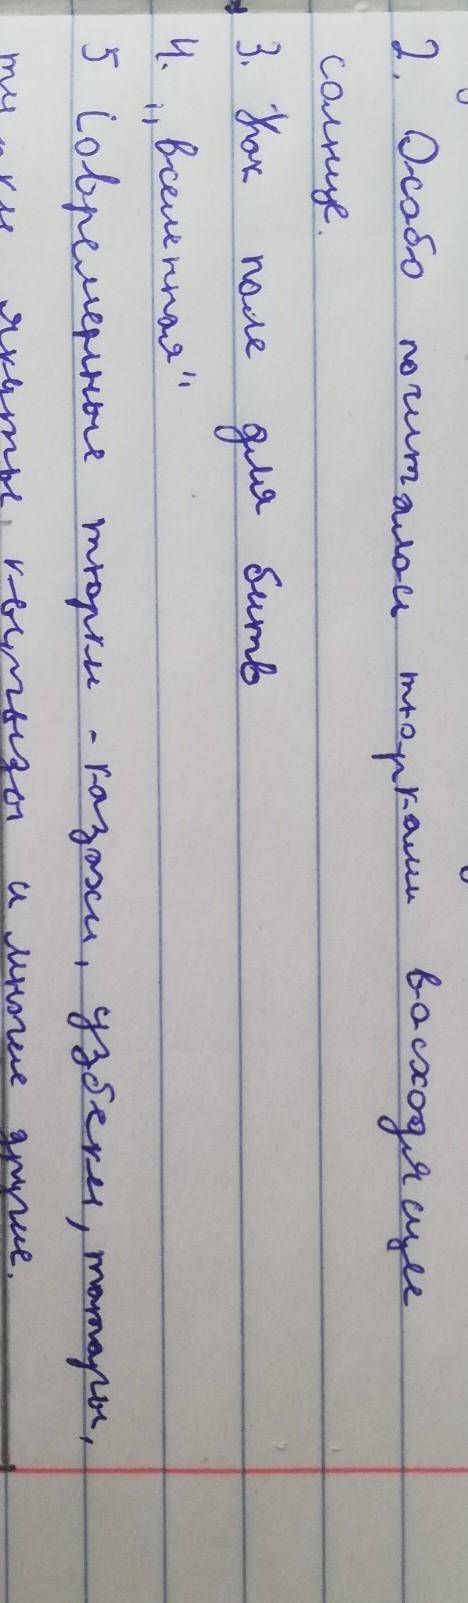 2. Особо почиталось тюрками восходящее
солнце.
3. Как поле для битв
4. "вселенная"
5 Современные тюрки - казахи, узбеки, татары,
якуты, кыргызы и многие другие.